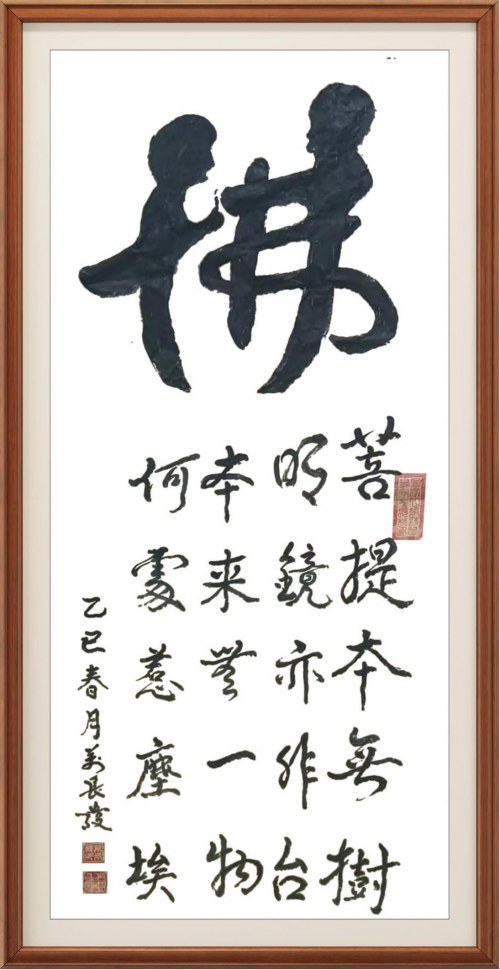 佛
菩提本無樹
明鏡亦非台
本来無一物
何處惹塵埃
乙巳春月姜長發